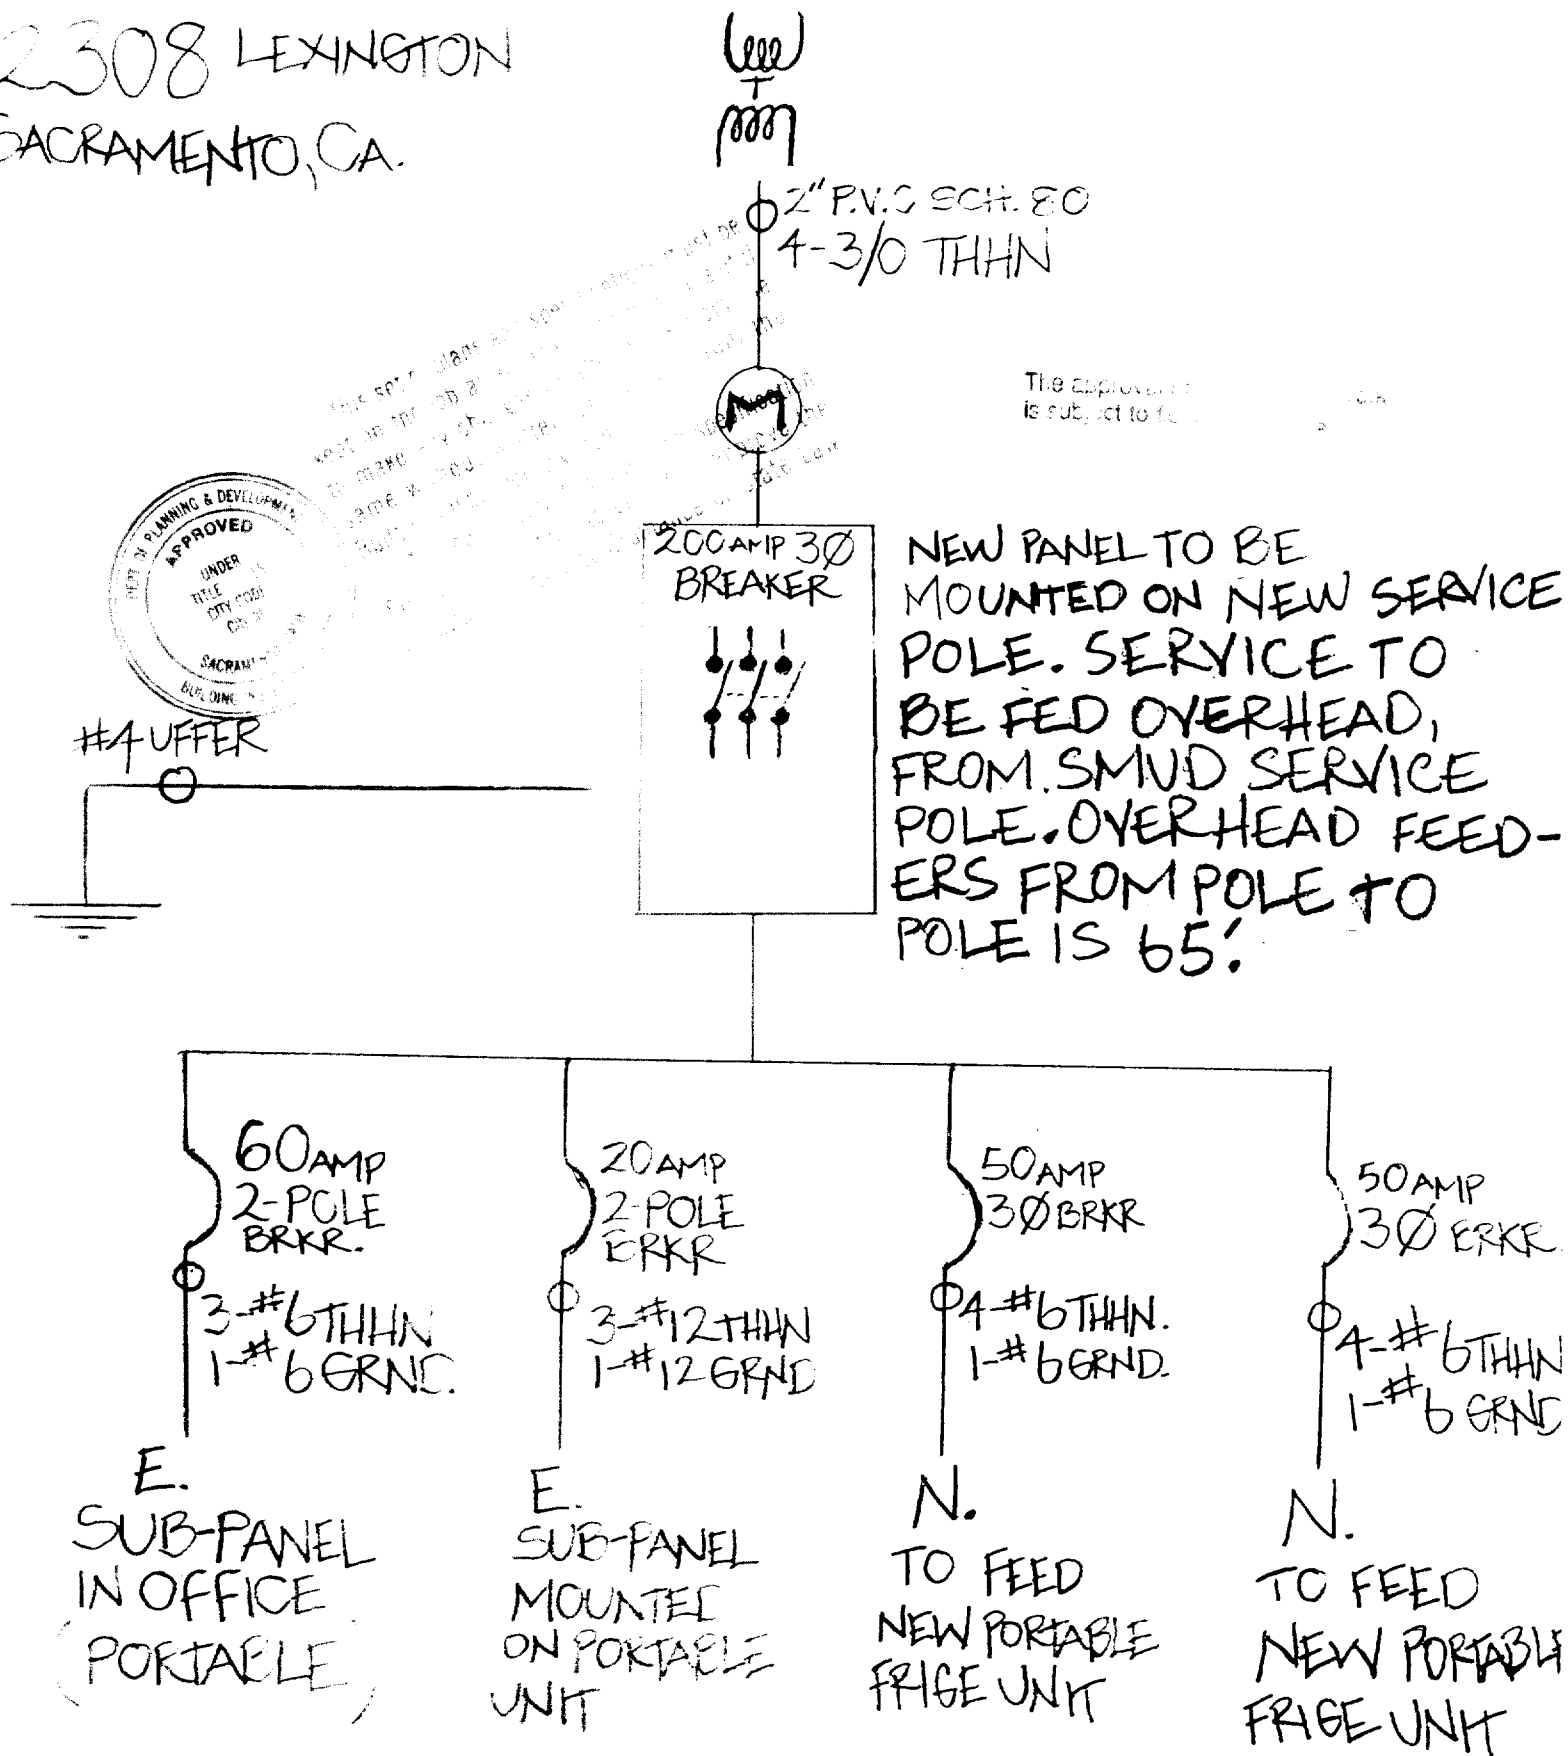 2308 LEXINGTON
SACRAMENTO, CA.
2" P.V.C SCH. 80
4-3/0 THHN
M
The approval
is subject to
DEPT OF PLANNING & DEVELOPMENT
APPROVED
UNDER
TITLE
CITY CODE
BUILDING
200 AMP 3Ø
BREAKER
NEW PANEL TO BE
MOUNTED ON NEW SERVICE
POLE. SERVICE TO
BE FED OVERHEAD,
FROM SMUD SERVICE
POLE. OVERHEAD FEED-
ERS FROM POLE TO
POLE IS 65'.
#4 UFFER
60 AMP
2-POLE
BRKR.
3-#6 THHN
1-#6 GRND.
E.
SUB-PANEL
IN OFFICE
(PORTABLE)
20 AMP
2-POLE
BRKR
3-#12 THHN
1-#12 GRND
E.
SUB-PANEL
MOUNTED
ON PORTABLE
UNIT
50 AMP
3Ø BRKR
4-#6 THHN.
1-#6 GRND.
N.
TO FEED
NEW PORTABLE
FRIGE UNIT
50 AMP
3Ø BRKR.
4-#6 THHN
1-#6 GRND
N.
TO FEED
NEW PORTABLE
FRIGE UNIT